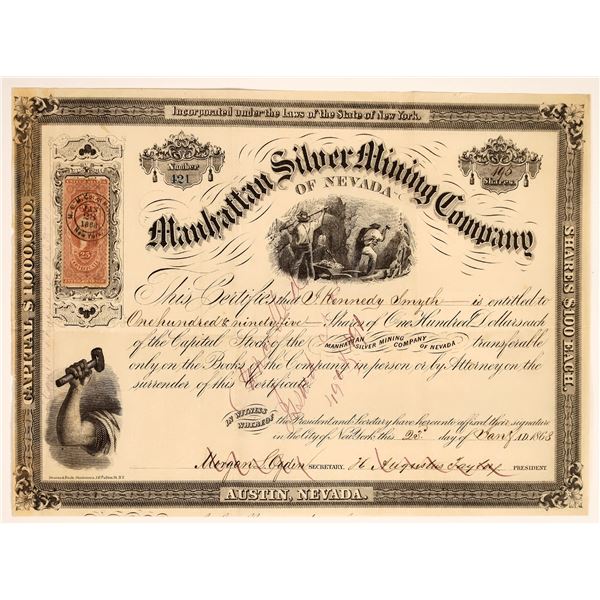 Incorporated under the Laws of the State of New York.
Number
421
195
Shares
Manhattan Silver Mining Company
OF NEVADA
CAPITAL $1,000,000.
SHARES $100 EACH.
This Certifies that J. Kennedy Smyth is entitled to
One hundred & ninety five Shares of One Hundred Dollars each
of the Capital Stock of the MANHATTAN SILVER MINING COMPANY OF NEVADA transferable
only on the Books of the Company in person or by Attorney on the
surrender of this Certificate.
IN WITNESS WHEREOF the President and Secretary have hereunto affixed their signature
in the City of New York this 25 day of Jany A.D. 1868
Morgan Ogden SECRETARY. H. Augustus Taylor PRESIDENT
AUSTIN, NEVADA.
Cancelled